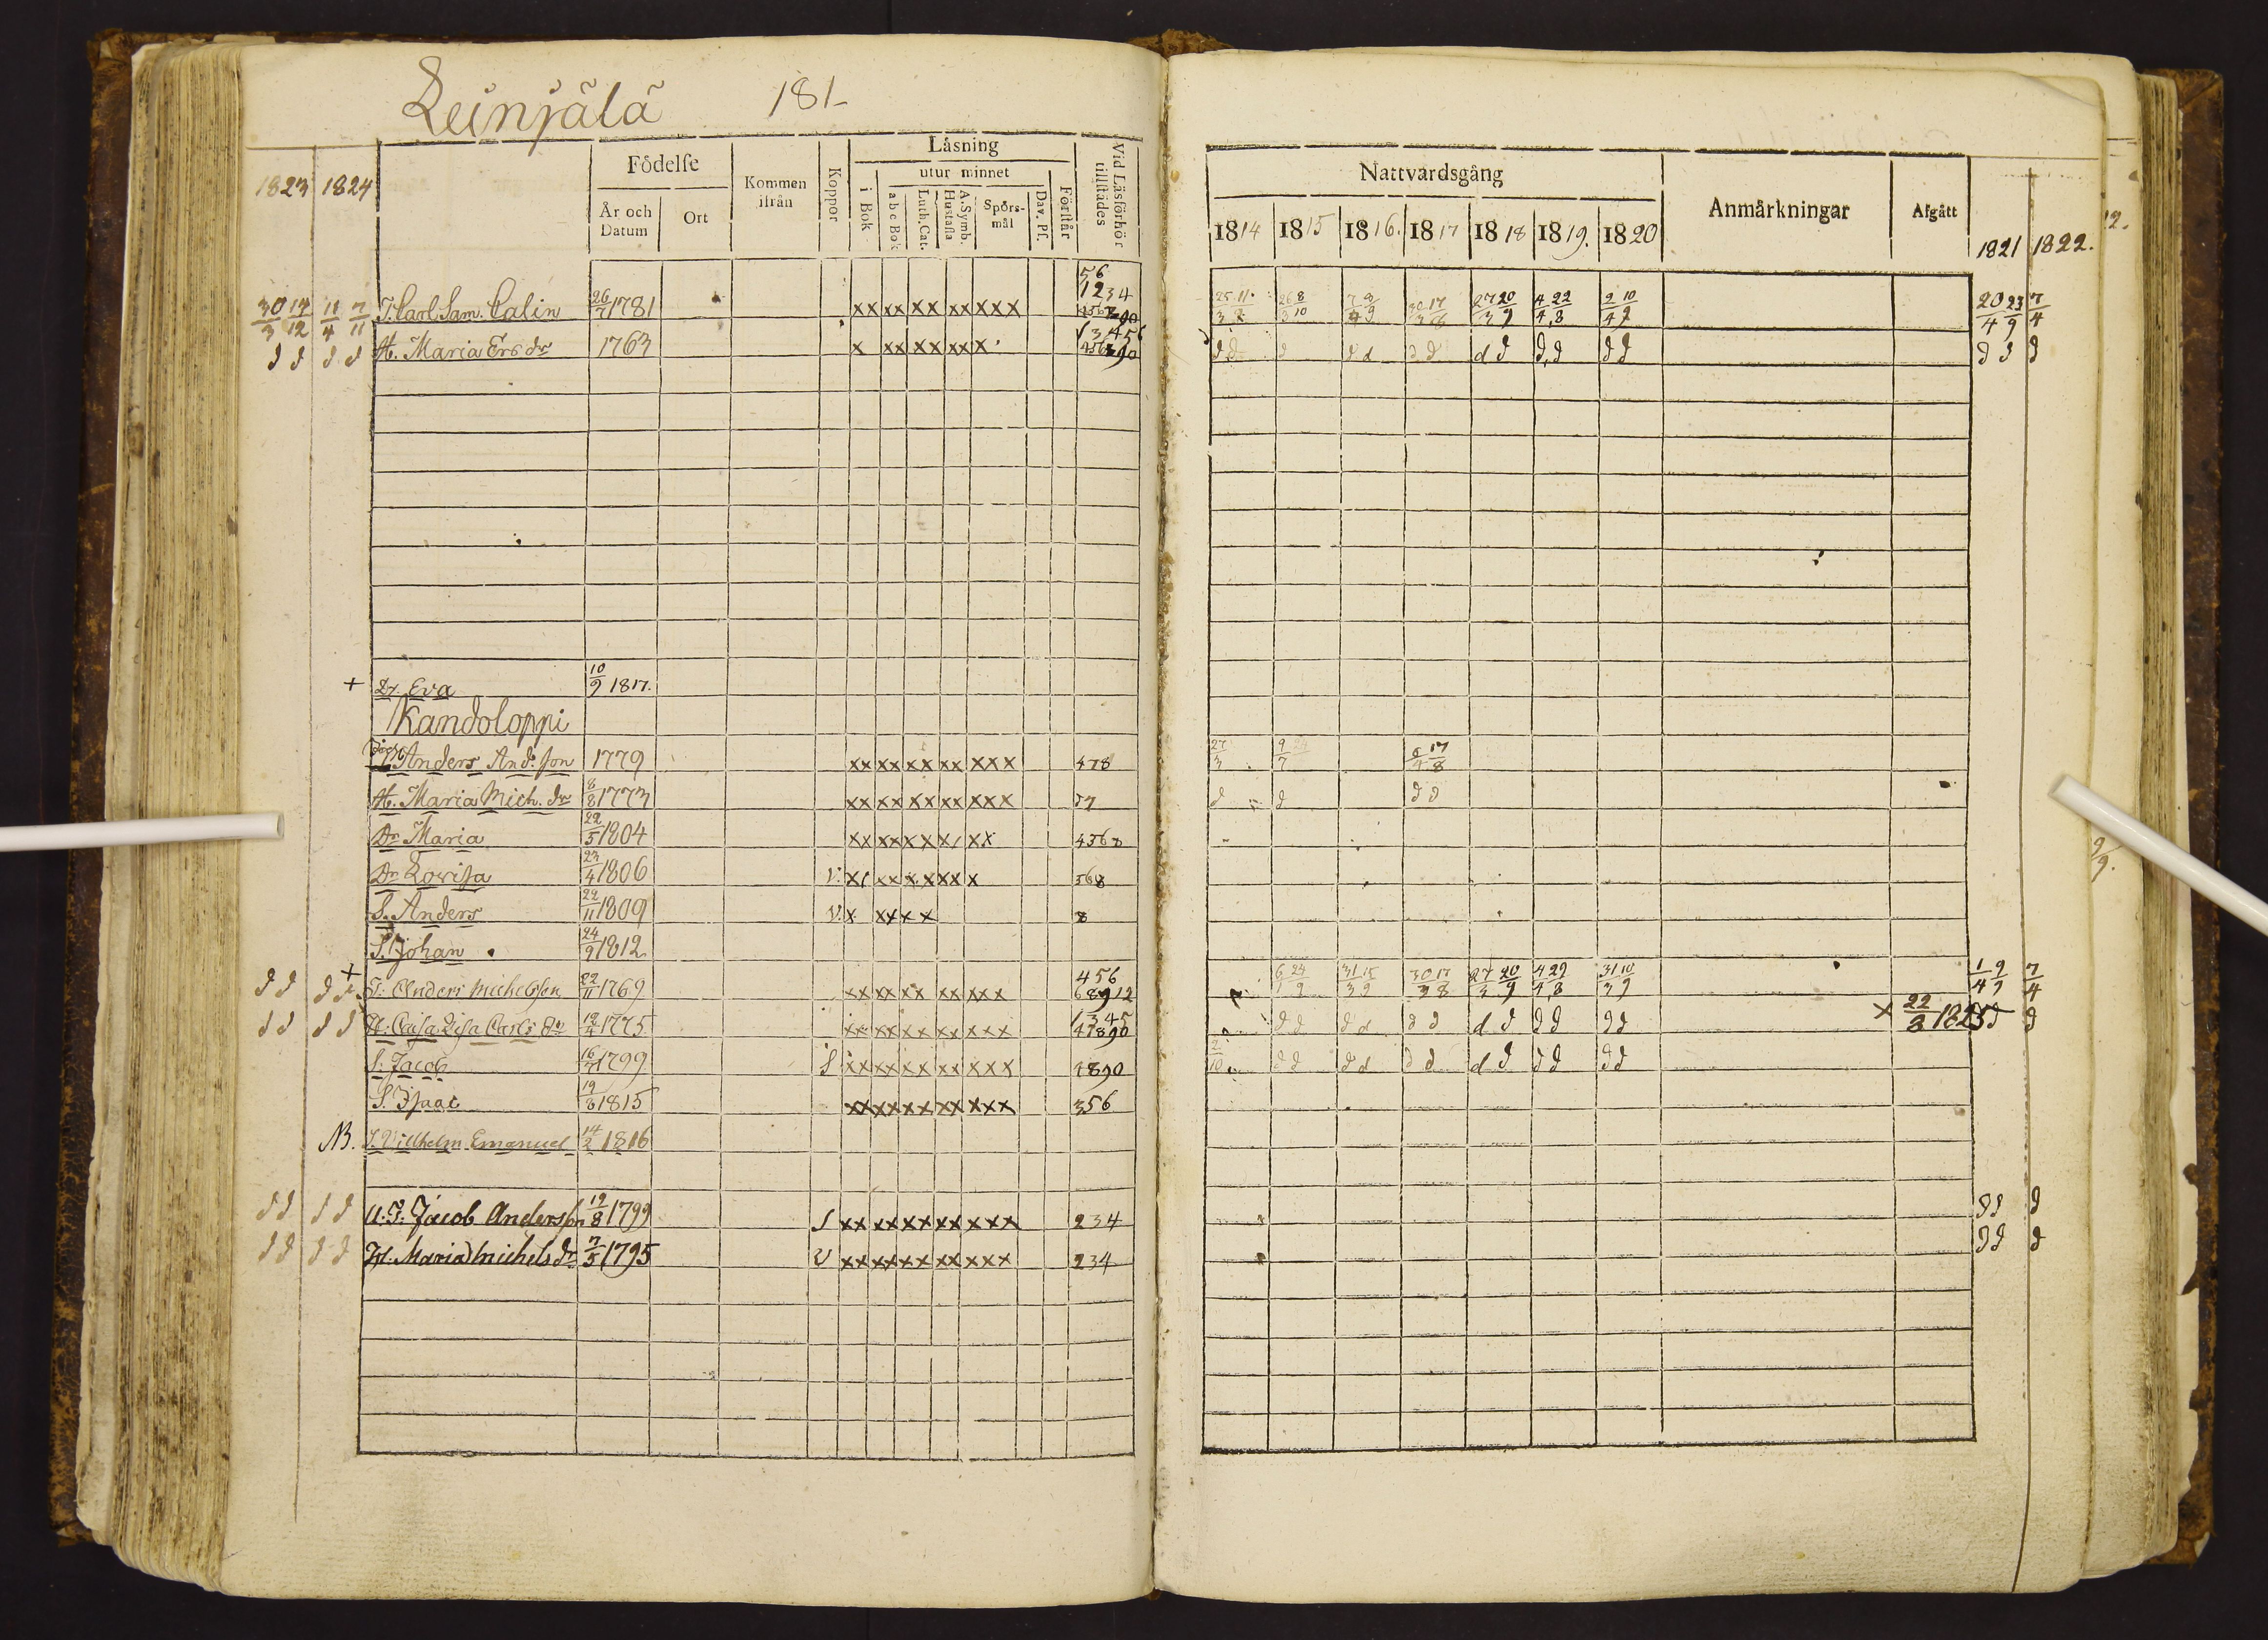 Leinjälä 181-
1823 1824 Födelse År och Datum Ort Kommen ifrån Koppor Läsning i Bok utur minnet abc Bok Luth. Cat. Hustafla A. Symb. Spörs-mål Dav. Ps. Förstår Vid Läsförhör tillstädes
Nattvardsgång 1814 1815 1816. 1817 1818 1819. 1820 Anmärkningar Afgått 1821 1822.
30/3 14/12 11/4 7/11 T. Carl Sam. Calin 26/7 1781 xx xx xx xx xxx 56 1234
27 20/3 9 4 22/4,8 2 10/4 9 20 23/4 9 7/4
d d d d H. Maria Ers dr 1763 x xx xx xx x
d d d d d d d d d d d d d
+ Dr. Eva 10/9 1817.
Kandoloppi
Anders And. son 1779 xx xx xx xx xxx 478
27/3 9/7 17/8
H. Maria Mich. dr 8/8 1773 xx xx xx xx xxx 57
d d d d
Dr Maria 22/5 1804 4568
Dr Lovisa 23/4 1806 v. 568
S. Anders 22/11 1809 v. x xx xx 8
S. Johan 24/9 1812
d d d + T: Anders Michelsson 22/11 1769 xx xx xx xx xxx 456 68912
6 24/1 9 31 15/3 9 30 17/3 8 27 20/3 9 4 29/4,8 31 10/3 9 1 9/4 9 7/4
d d d d H: Caisa Lisa Carls dr 12/4 1775 xx xx xx xx xxx 1345 47890
d d d d d d d d d d d d x 22/3 1825 d d
S. Jacob 16/7 1799 S xx xx xx xx xxx 4890
d d d d d d d d d d d d
S. Isaac 19/3 1815 xx xx xx xx xxx 356
NB. S. Vilhelm Emanuel 14/2 1816
d d d d U: T: Jacob Andersson 19/8 1799 S xx xx xx xx xxx 234
d d d
d d d d H. Maria Michels dr 7/5 1795 V xx xx xx xx xxx 234
d d d